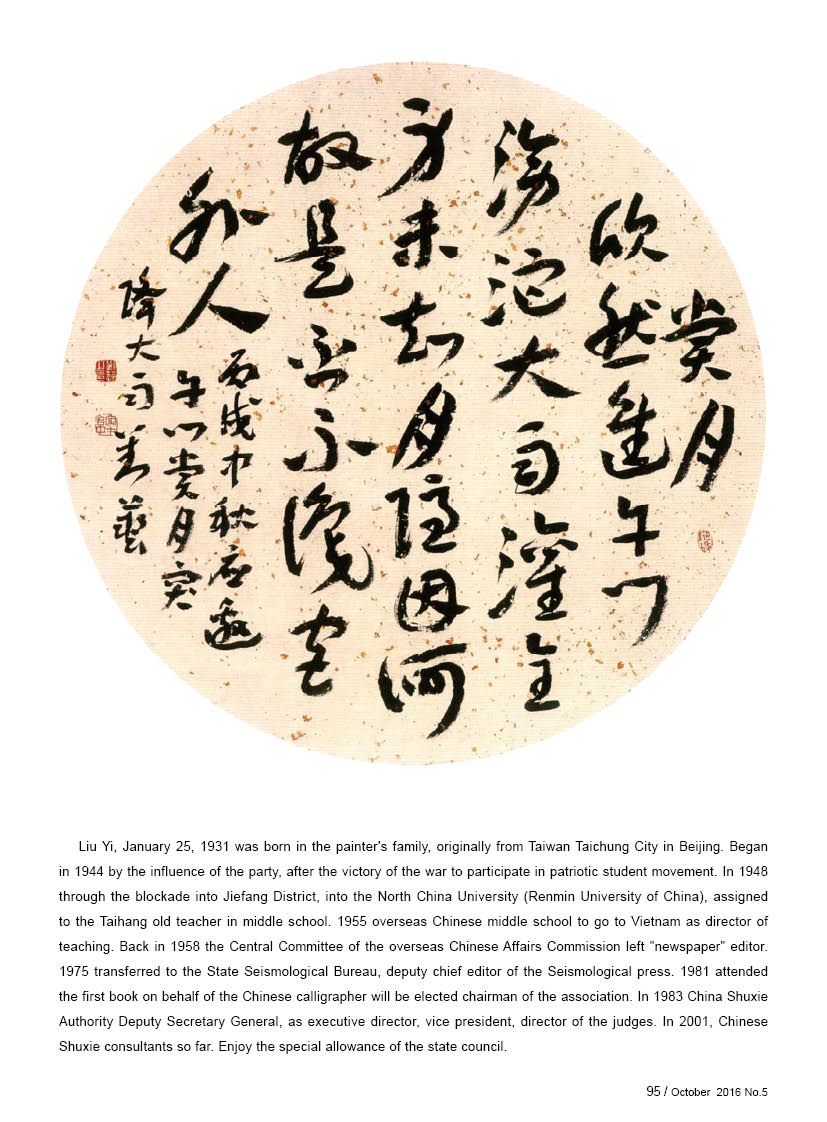 赏月
欣然進午门
滂沱大雨灌全
身未知月隐因何
故是否不
外人
丙戌中秋应邀
午门赏月突
降大雨刘艺
Liu Yi, January 25, 1931 was born in the painter's family, originally from Taiwan Taichung City in Beijing. Began
in 1944 by the influence of the party, after the victory of the war to participate in patriotic student movement. In 1948
through the blockade into Jiefang District, into the North China University (Renmin University of China), assigned
to the Taihang old teacher in middle school. 1955 overseas Chinese middle school to go to Vietnam as director of
teaching. Back in 1958 the Central Committee of the overseas Chinese Affairs Commission left "newspaper" editor.
1975 transferred to the State Seismological Bureau, deputy chief editor of the Seismological press. 1981 attended
the first book on behalf of the Chinese calligrapher will be elected chairman of the association. In 1983 China Shuxie
Authority Deputy Secretary General, as executive director, vice president, director of the judges. In 2001, Chinese
Shuxie consultants so far. Enjoy the special allowance of the state council.
95 / October 2016 No.5